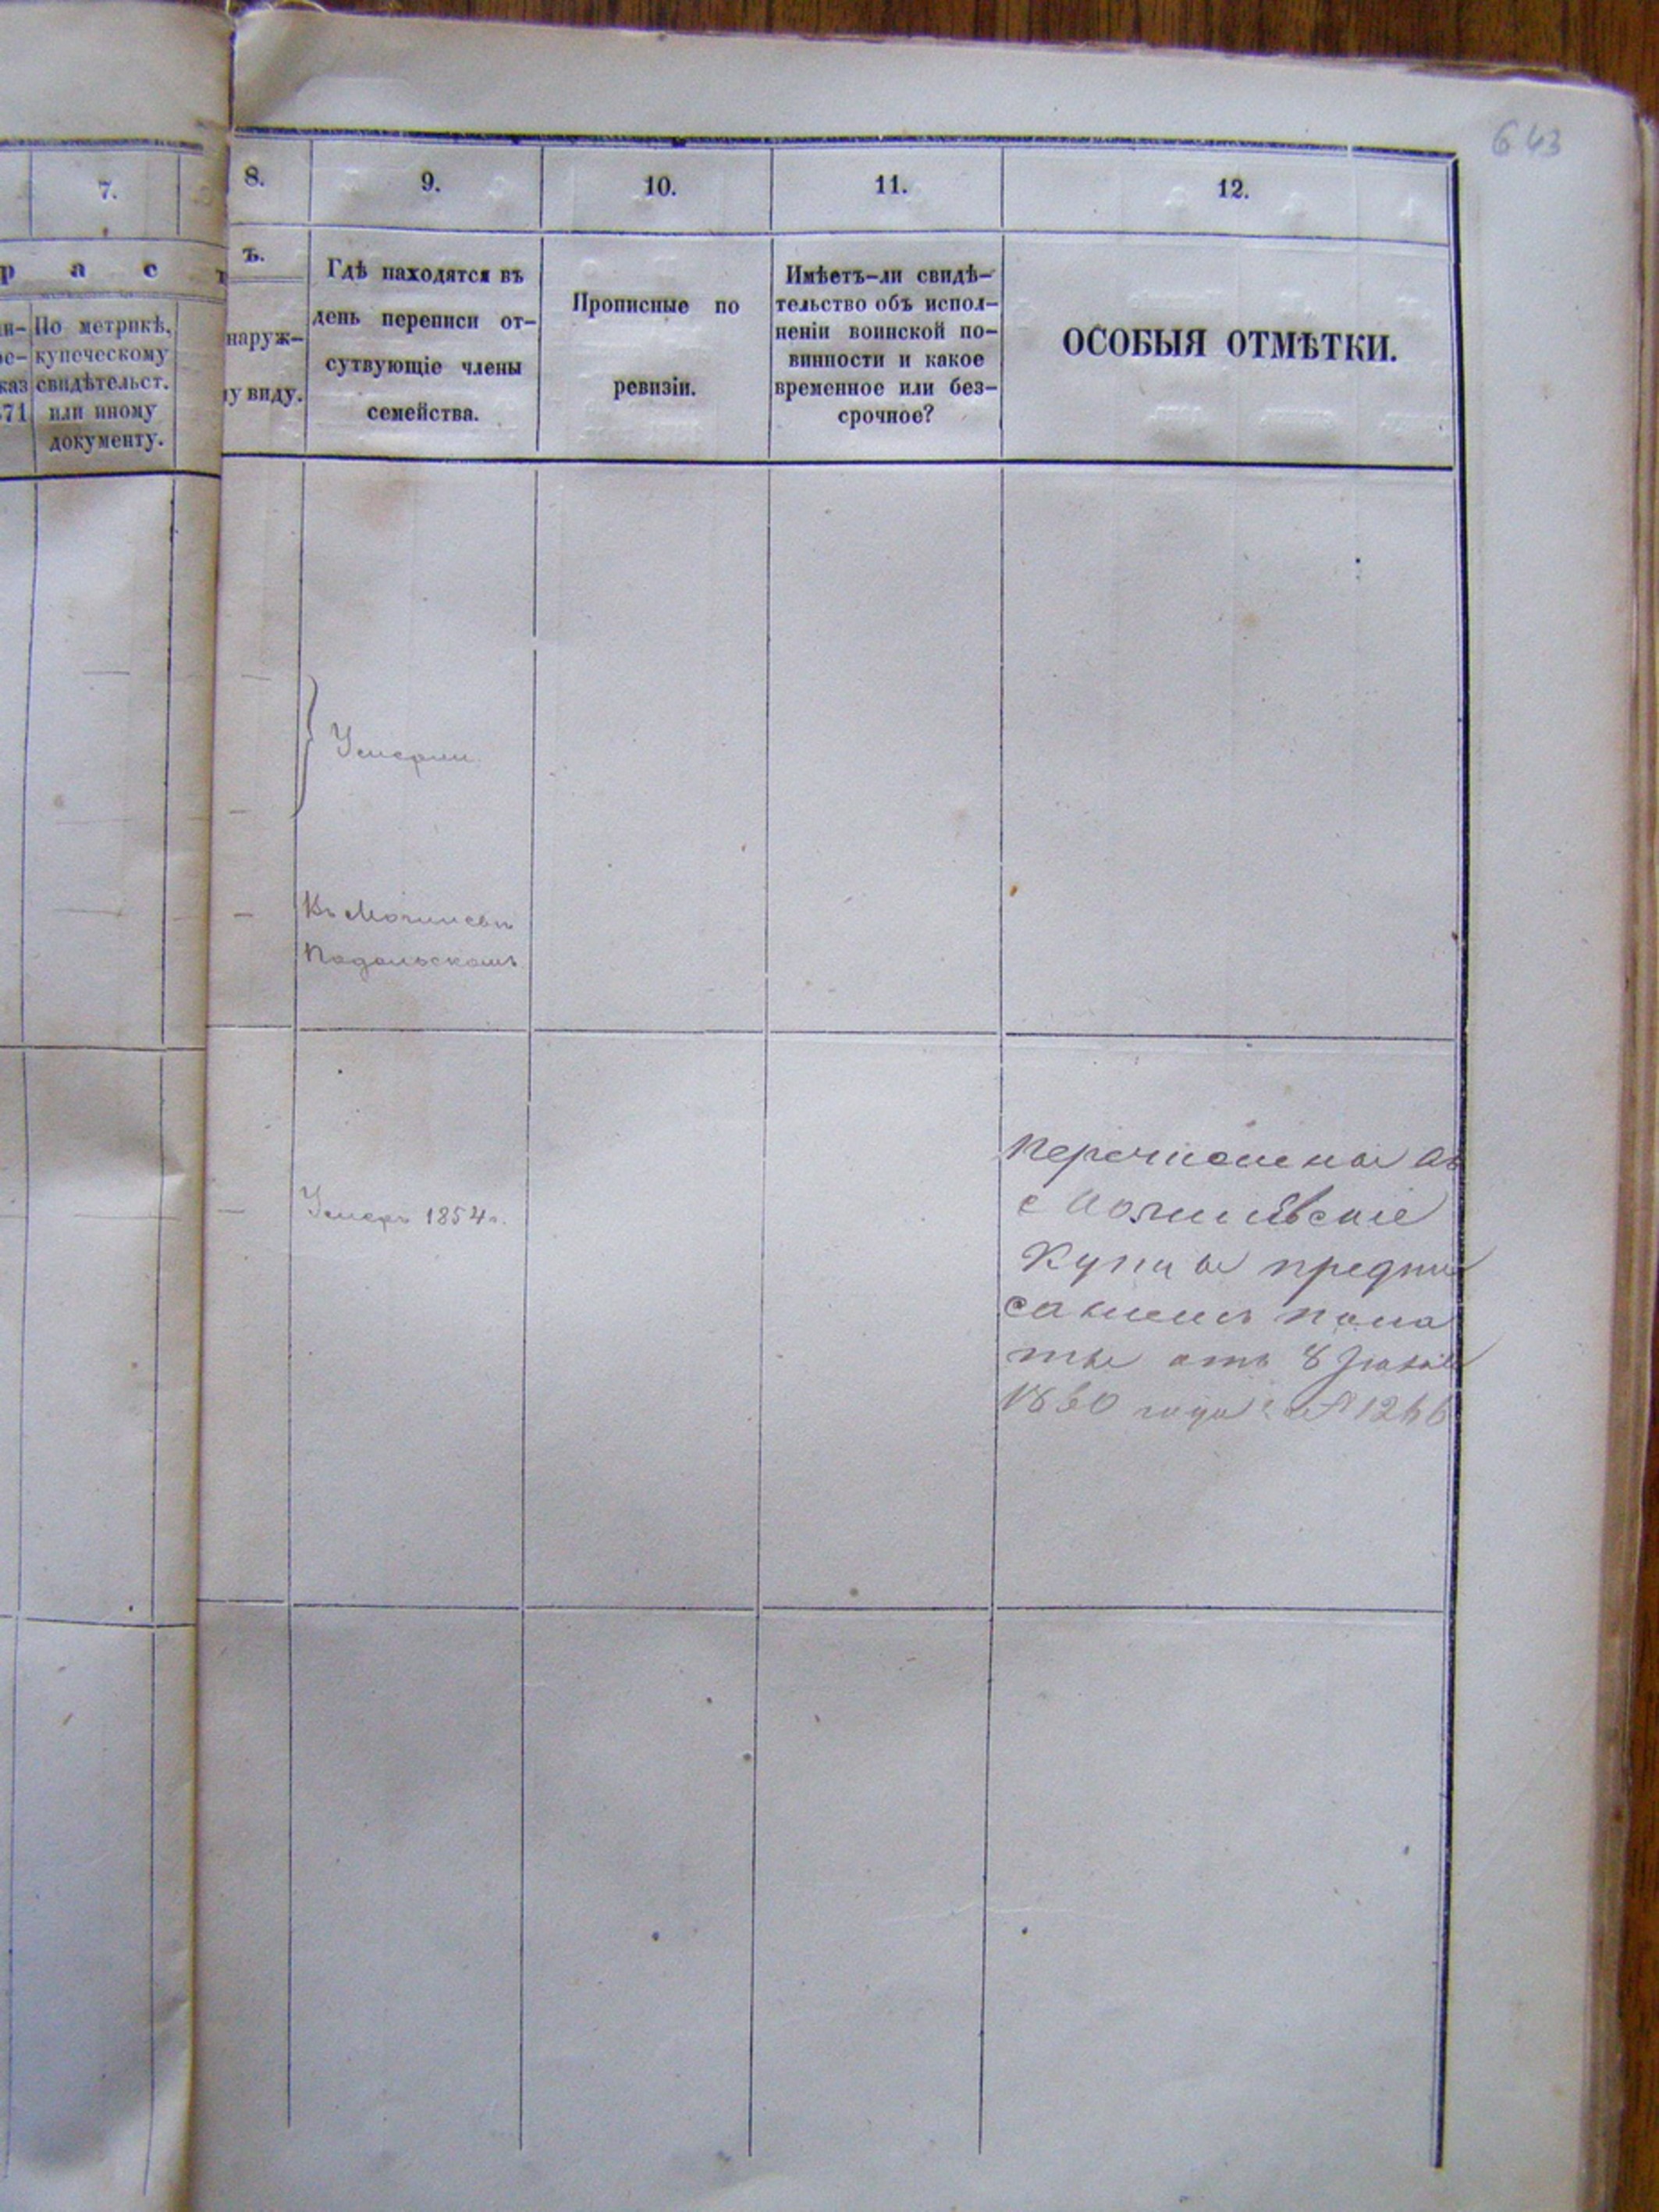 643
7.
8.
9.
10.
11.
12.
р а с
ъ.
По метрикѣ,
купеческому
свидѣтельст.
или иному
документу.
наруж-
у виду.
Гдѣ находятся въ
день переписи от-
сутвующіе члены
семейства.
Прописные по
ревизіи.
Имѣетъ-ли свидѣ-
тельство объ испол-
неніи воинской по-
винности и какое
временное или без-
срочное?
ОСОБЫЯ ОТМѢТКИ.
Умерли
Въ Могилевѣ
Подольскомъ
Умеръ 1854 г.
Перечислены въ
Могилевскіе
Купцы предпи
саніемъ пала
ты отъ 8
года №